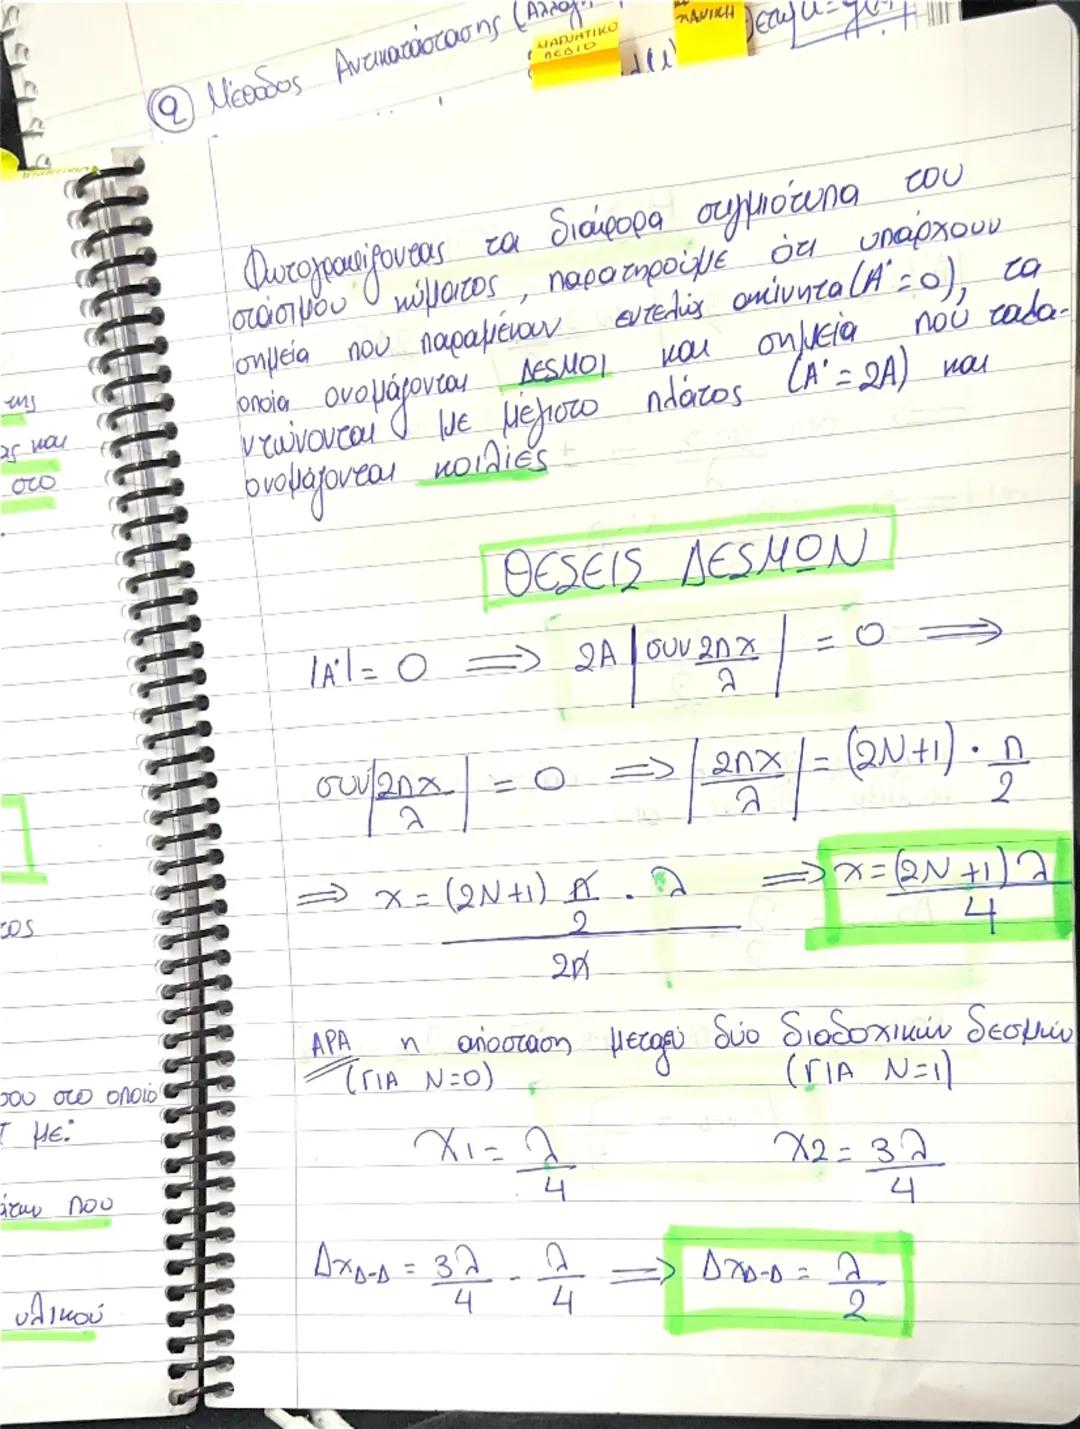 ② Μέθοδος Αντικατάστασης (Αλλαγή
ΜΑΓΝΗΤΙΚΟ
ΠΕΔΙΟ
Φωτογραφίζοντας τα διάφορα στιγμιότυπα του
στάσιμου κύματος, παρατηρούμε ότι υπάρχουν
σημεία που παραμένουν εντελώς ακίνητα (Α'=0), τα
οποία ονομάζονται ΔΕΣΜΟΙ και σημεία που ταλα-
ντώνονται με μέγιστο πλάτος (Α'=2Α) και
ονομάζονται κοιλίες
ΘΕΣΕΙΣ ΔΕΣΜΩΝ
|Α'| = 0 ⟹ 2Α |συν 2πx/λ| = 0 ⟹
συν|2πx/λ| = 0 ⟹ |2πx/λ| = (2Ν+1) · π/2
⟹ x = (2Ν+1) π/2 · λ / 2π ⟹ x = (2Ν+1)λ/4
ΑΡΑ η απόσταση μεταξύ δύο διαδοχικών δεσμών
(ΓΙΑ Ν=0) (ΓΙΑ Ν=1)
x1 = λ/4 x2 = 3λ/4
ΔxΔ-Δ = 3λ/4 - λ/4 ⟹ ΔxΔ-Δ = λ/2
της
ας και
στο
τος
σου στο οποίο
Τ με:
που
υλικού